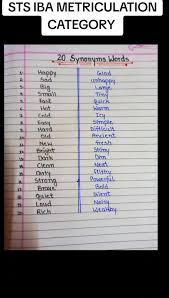 STS IBA METRICULATION
CATEGORY
20 Synonyms Words
Happy Glad
Sad unhappy
Big Large
Small Tiny
Fast Quick
Hot Warm
Cold Icy
Easy Simple
Hard Difficult
Old Ancient
New Fresh
Bright Shiny
Dark Dim
Clean Neat
Dirty Filthy
Strong Powerful
Brave Bold
Quiet Silent
Loud Noisy
Rich Wealthy